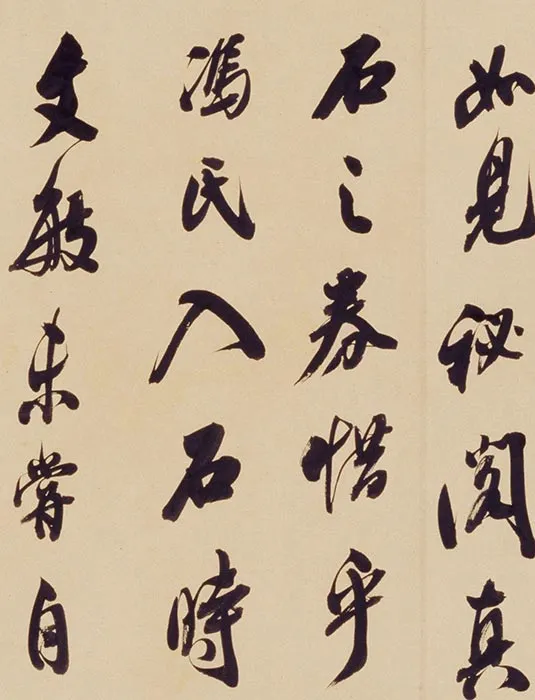 如見秘閣真
石之券惜乎
馮氏入石時
文敏未嘗自